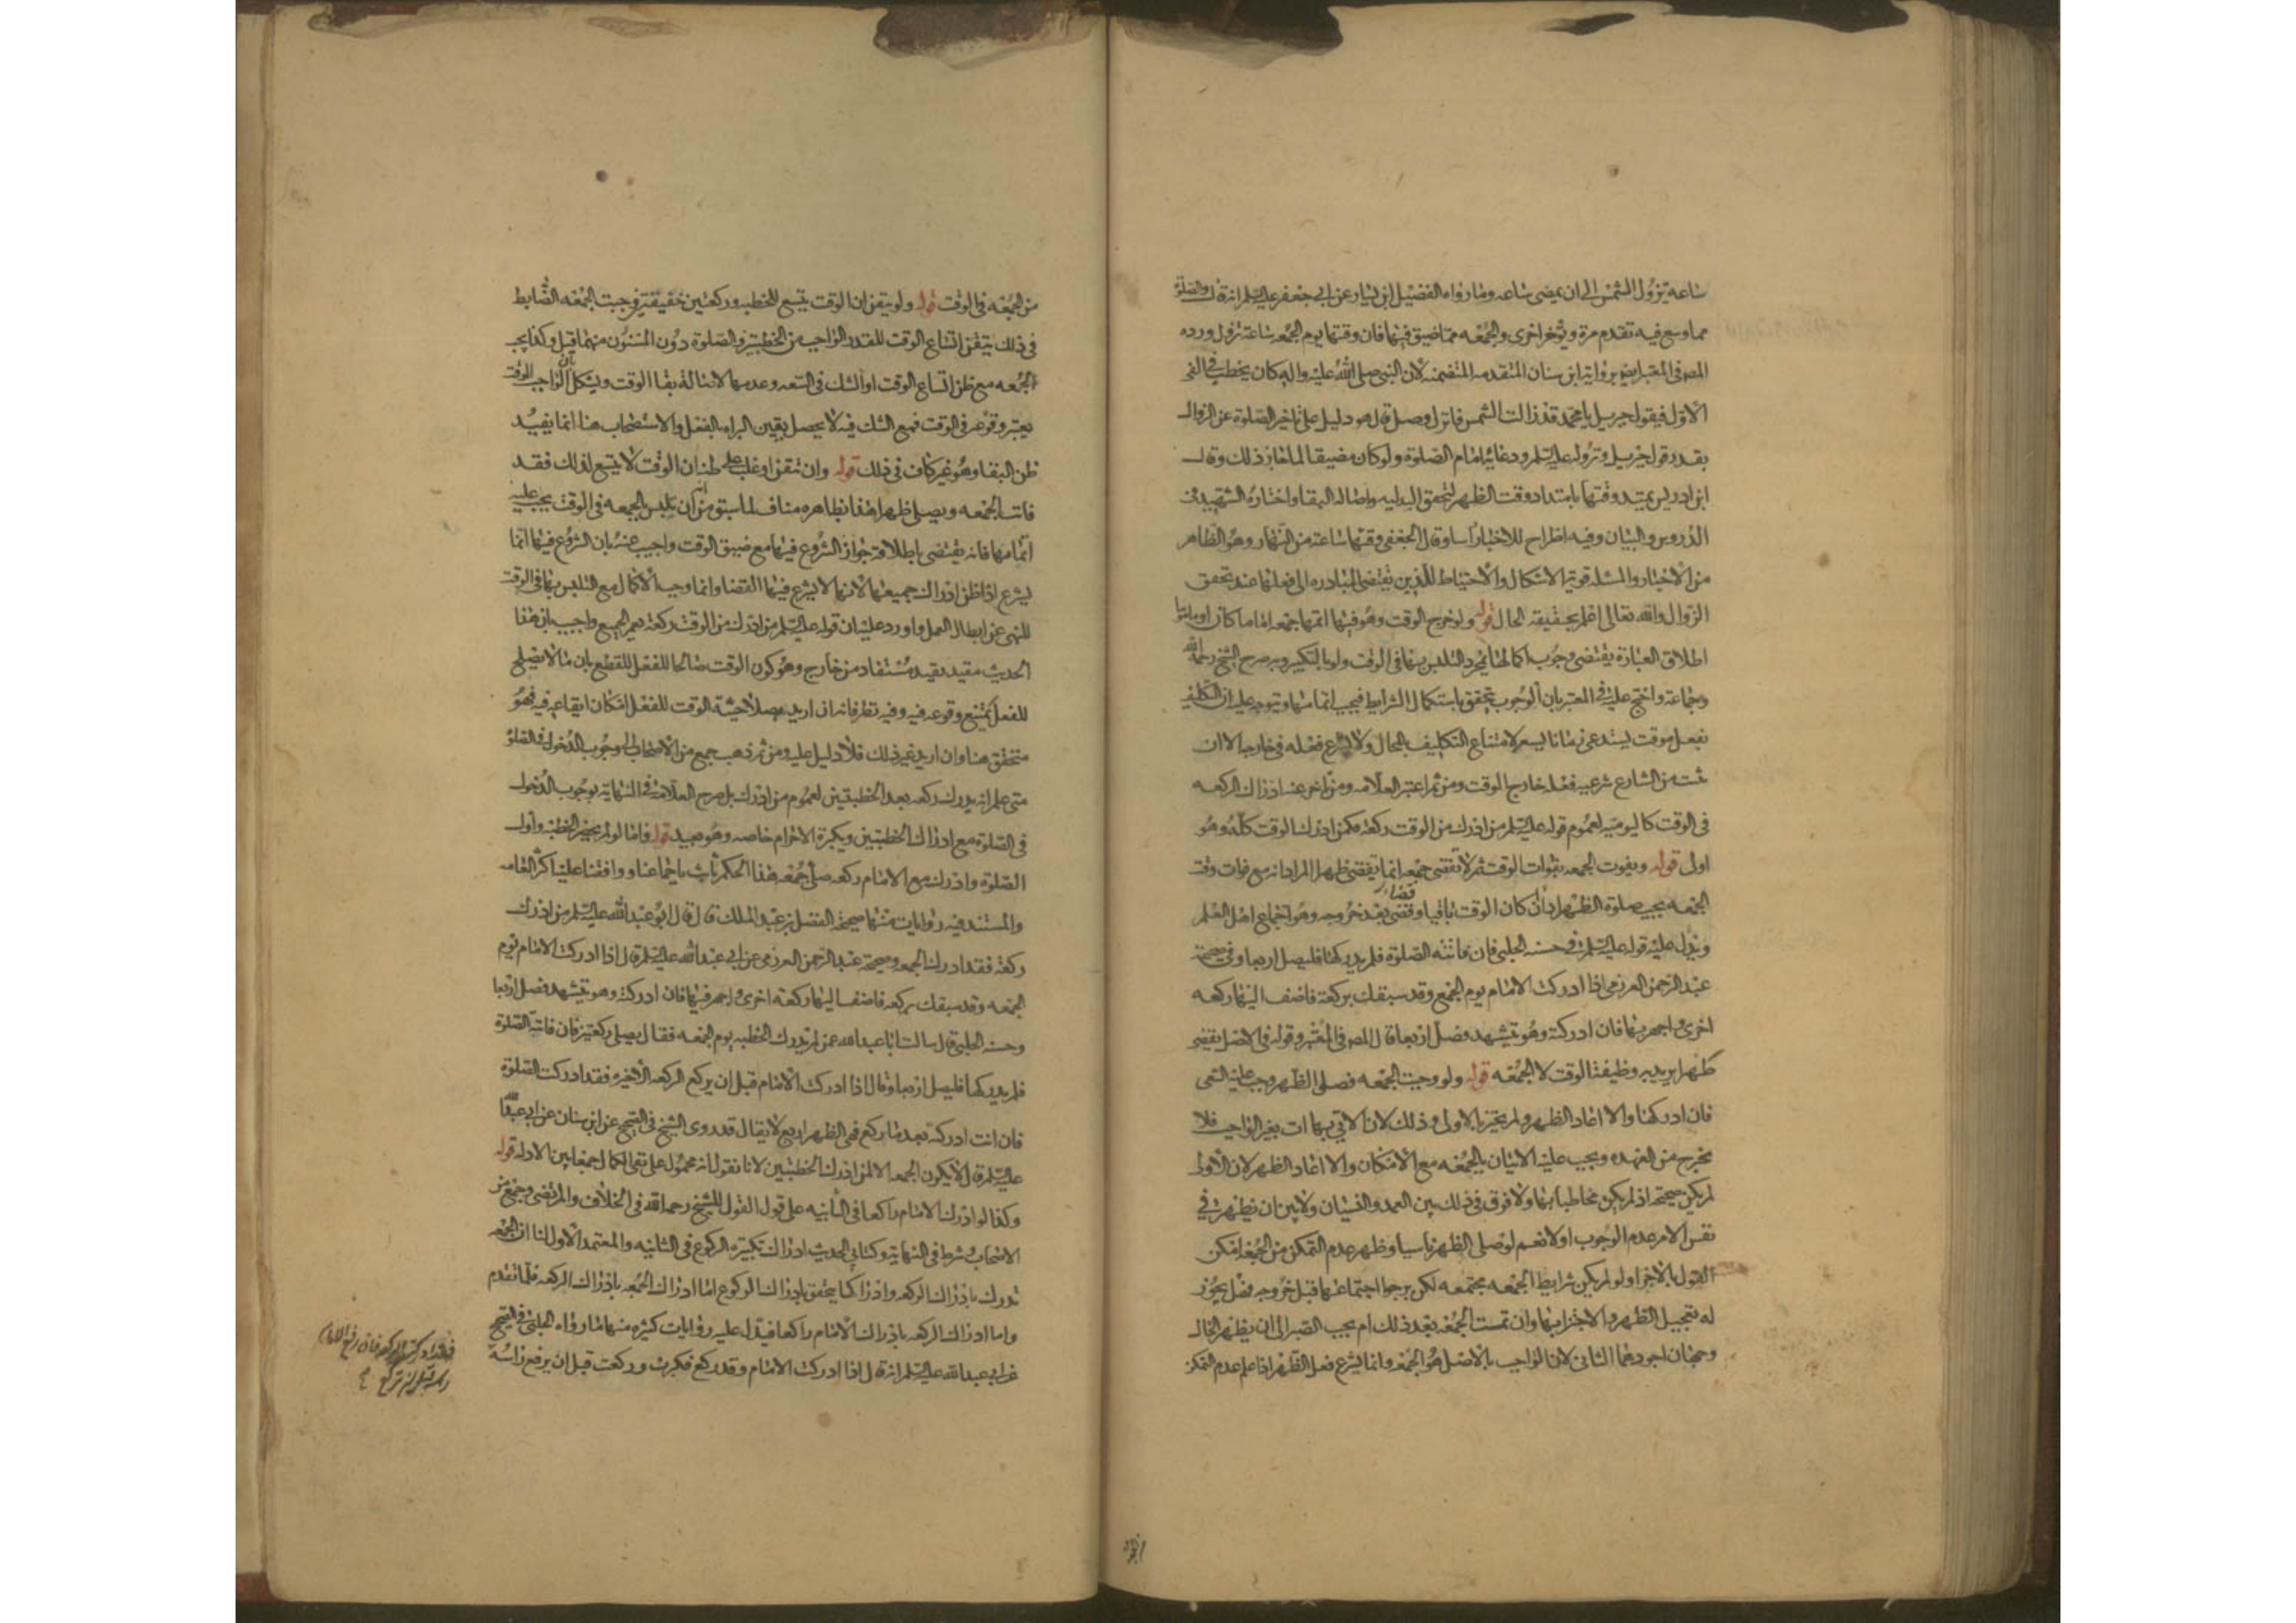 ساعة تزول الشمس الى ان يمضى ساعه وما رواه الفضيل ابن يسار عن ابى جعفر عليه السلم انه قال والصلوة
مما وسع فيه تقدم مرة ويؤخر اخرى والجمعه مما ضيق فيها فان وقتها يوم الجمعه ساعة تزول ورده
المص فى المعتبر برواية ابن سنان المتقدمه المتضمنه لان النبى صلى الله عليه واله كان يخطب فى الفى
الاول فيقول جبريل يا محمد قد زالت الشمس فانزل وصل قال هو دليل على تاخير الصلوة عن الزوال
بقدر قول جبريل ونزوله عليه السلم ودعائه امام الصلوة ولو كان مضيقا لما جاز ذلك وقال
ابن ادريس يمتد وقتها بامتداد وقت الظهر لتحقق البدليه واصالة البقا واختاره الشهيد فى
الدروس والبيان وفيه اطراح للاخبار راسا وقال الجعفى وقتها ساعة من النهار وهو الظاهر
من الاخبار والمسئله قوية الاشكال والاحتياط للدين يقتضى المبادره الى فعلها عند تحقق
الزوال والله تعالى اعلم بحقيقة الحال قوله ولو خرج الوقت وهو فيها اتمها جمعه اماما كان او ماموما
اطلاق العبارة يقتضى وجوب اكمالها بمجرد التلبس بها فى الوقت ولو بالتكبير وبه صرح الشيخ رحمه الله
وجماعة واحتج عليه فى المعتبر بان الوجوب يتحقق باستكمال الشرايط فيجب اتمامها ويتوجه عليه ان التكليف
بفعل موقت يستدعى زمانا يسعه لامتناع التكليف بالمحال ولا يشرع فعله فى خارجه الا ان
ثبت من الشارع شرعيه فعله خارج الوقت ومن ثم اعتبر العلامه ومن تاخر عنه ادراك الركعه
فى الوقت كاليوميه لعموم قوله عليه السلم من ادرك من الوقت ركعة فكمن ادرك الوقت كله وهو
اولى قوله وبفوت الجمعه بفوات الوقت ثم لا تقضى جمعه انما يقضى ظهرا المراد انه مع فوات وقت
الجمعه يجب صلوة الظهر اداء ان كان الوقت باقيا وقضاء بعد خروجه وهو اجماعى اهل العلم
ويدل عليه قوله عليه السلم فى حسنه الحلبى فان فاتته الصلوة فلم يدركها فليصل اربعا وفى صحيحة
عبد الرحمن العرزمى اذا ادركت الامام يوم الجمعه وقد سبقك بركعة فاضف اليها ركعه
اخرى واجهر بها فان ادركته وهو يتشهد فصل اربعا قال المص فى المعتبر وقوله فى الاصل يقضى
ظهرا يريد به وظيفة الوقت لا الجمعه قوله ولو وجبت الجمعه فصلى الظهر وجب عليه السعى
فان ادركها والا اعاد الظهر ولم يجتز بالاولى وذلك لان الاتى بها ات بغير الواجب فلا
يخرج من العهده ويجب عليه الاتيان بالجمعه مع الامكان والا اعاد الظهر لان الاولى
لم يكن صحيحة اذ لم يكن مخاطبا بها ولا فرق فى ذلك بين العمد والنسيان ولا بين ان يظهر فى
نفس الامر عدم الوجوب او لا نعم لو صلى الظهر ناسيا وظهر عدم التمكن من الجمعة امكن
القول بالاجزا ولو لم يكن شرايط الجمعه مجتمعه لكن يرجوا اجتماعها قبل خروجه فهل يجوز
له تعجيل الظهر والاجتزا بها وان تمت الجمعه بعد ذلك ام يجب الصبر الى ان يظهر الحال
وجهان اجودهما الثانى لان الواجب بالاصل هو الجمعه وانما يشرع فعل الظهر اذا علم عدم التمكن
من الجمعه فى الوقت قوله ولو تيقن ان الوقت يتسع للخطبه وركعتين خفيفتين وجبت الجمعه الضابط
فى ذلك تيقن اتساع الوقت للقدر الواجب من الخطبتين والصلوة دون المسنون منهما قيل وكذا يجب
الجمعه مع ظن اتساع الوقت او الشك فى السعه وعدمها لاصالة بقا الوقت ويشكل بان الواجب الموقت
يعتبر وقوعه فى الوقت فمع الشك فيه لا يحصل يقين البراه بالفعل والاستصحاب هنا انما يفيد
ظن البقا وهو غير كاف فى ذلك قوله وان تيقن او غلب على ظنه ان الوقت لا يتسع لذلك فقد
فاتت الجمعه ويصلى ظهرا هذا بظاهره مناف لما سبق من انه ان تلبس بالجمعه فى الوقت يجب عليه
اتمامها فانه يقتضى باطلاقه جواز الشروع فيها مع ضيق الوقت واجيب عنه بان الشروع فيها انما
يشرع اذا ظن ادراك جميعها لانها لا يشرع فيها القضا وانما وجب الاكمال مع التلبس بها فى الوقت
للنهى عن ابطال العمل واورد عليه ان قوله عليه السلم من ادرك من الوقت ركعة يعم الجميع واجيب بان هذا
الحديث مقيد بقيد مستفاد من خارج وهو كون الوقت صالحا للفعل للقطع بان ما لا يصلح
للفعل يمتنع وقوعه فيه وفيه نظر فانه ان اريد بصلاحية الوقت للفعل امكان ايقاعه فيه فهو
متحقق هنا وان اريد غير ذلك فلا دليل عليه ومن ثم ذهب جمع من الاصحاب الى وجوب الدخول فى الصلوة
متى علم انه يدرك ركعه بعد الخطبتين لعموم من ادرك بل صرح العلامه فى النهايه بوجوب الدخول
فى الصلوة مع ادراك الخطبتين وتكبيرة الاحرام خاصه وهو بعيد قوله فاما لو لم يحضر الخطبه واول
الصلوة وادرك مع الامام ركعه صلى جمعه هذا الحكم ثابت باجماعنا ووافقنا عليه اكثر العامه
والمستند فيه روايات منها صحيحة الفضل بن عبد الملك قال قال ابو عبد الله عليه السلم من ادرك
ركعة فقد ادرك الجمعه وصحيحة عبد الرحمن العرزمى عن ابى عبد الله عليه السلم قال اذا ادركت الامام يوم
الجمعه وقد سبقك بركعه فاضف اليها ركعة اخرى واجهر فيها فان ادركته وهو يتشهد فصل اربعا
وحسنه الحلبى قال سالت ابا عبد الله عمن لم يدرك الخطبه يوم الجمعه فقال يصلى ركعتين فان فاتته الصلوة
فلم يدركها فليصل اربعا وقال اذا ادركت الامام قبل ان يركع الركعه الاخيره فقد ادركت الصلوة
فان انت ادركته بعد ما ركع فهى الظهر اربع لا يقال قد روى الشيخ فى الصحيح عن ابن سنان عن ابى عبد الله
عليه السلم قال لا يكون الجمعه الا لمن ادرك الخطبتين لانا نقول انه محمول على نفى الكمال جمعا بين الادله قوله
وكذا لو ادرك الامام راكعا فى الثانيه على قول القول للشيخ رحمه الله فى الخلاف والمرتضى وجمع من
الاصحاب وشرط فى النهاية وكتابى الحديث ادراك تكبيرة الركوع فى الثانيه والمعتمد الاول لنا ان الجمعه
تدرك بادراك الركعه وادراكها يتحقق بادراك الركوع اما ادراك الجمعه بادراك الركعه فلما تقدم
واما ادراك الركعه بادراك الامام راكعا فيدل عليه روايات كثيره منها ما رواه الحلبى فى الصحيح
عن ابى عبد الله عليه السلم انه قال اذا ادركت الامام وقد ركع فكبرت وركعت قبل ان يرفع راسه
فقد ادركت الركعه فان رفع الامام
راسه قبل ان تركع